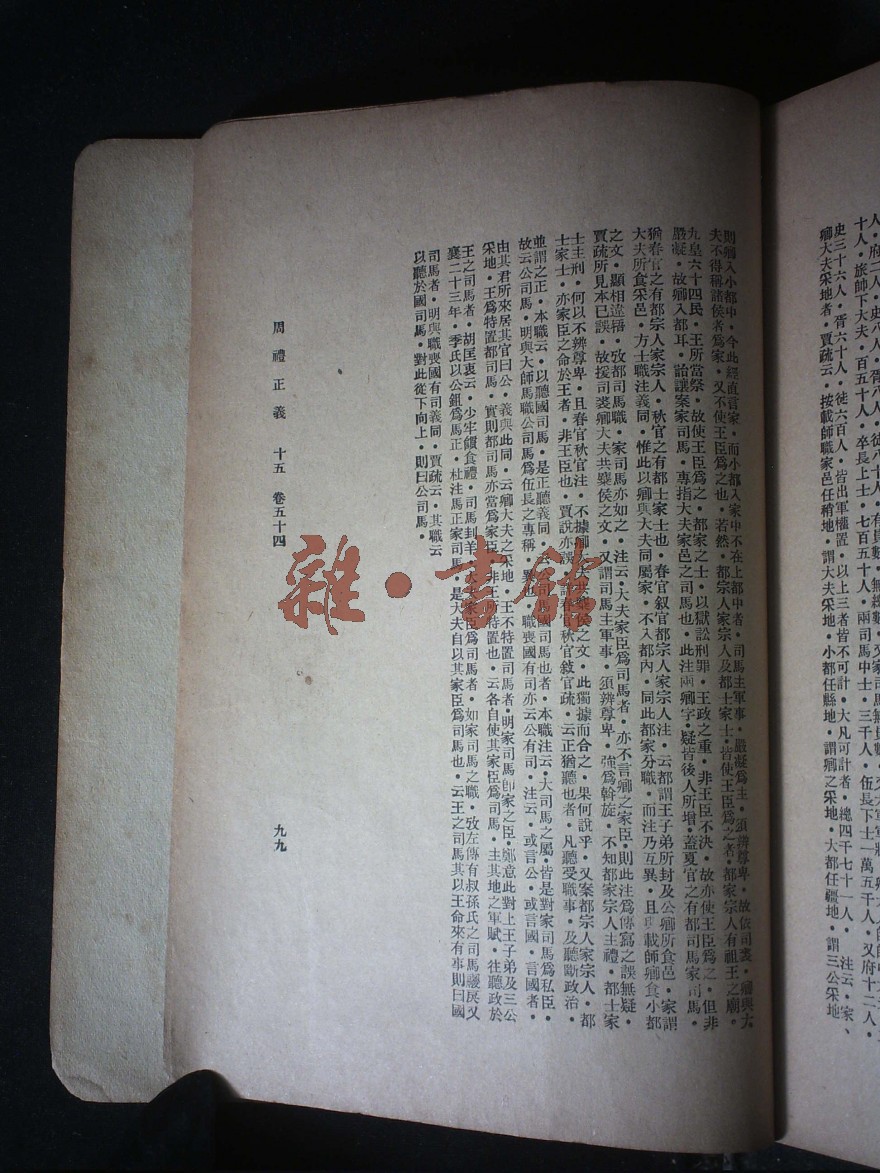 人，府二人，史八人，胥八人，徒八十人，
史三十六人，胥六十人，徒六百人，皆出軍權置，以上三者皆不可計，大凡可計者，總四千七十一人，注云，家、
卿大夫采地者，賈疏云，按載師職家邑任稍地，謂大夫采地，小都任縣地，謂卿之采地，大都任疆地，謂三公采地
則卿入小都中，今此經直言家，而小都入家中不在上都中者，司馬主軍事，嚴凝爲主，須辨尊卑，故依司裘，卿與大
夫不得稱諸侯者爲家，又不使王臣爲之也，若然，都宗人家宗人及都士家士，皆使王臣爲之者，都家宗人有祖王之廟，
九皇六十四民，王所當祭，故使王臣爲之，都家之士，以獄訟刑罪，王政之重，非王臣不決，故亦使王臣爲之，但非
嚴凝，故卿入都耳，詒讓案家司馬，專指大夫家邑之司馬也，此注兩卿字，疑皆後人所增，蓋夏官之有都司馬家司馬，
猶春官之有都宗人家宗人，秋官之有都士家士也，春官叙官都宗人家宗人注，云都謂王子弟所封及公卿所食邑，家謂
大夫所食采邑，方士職注義同，惟此以卿與大夫同屬家，不入都內，同此都家分職，而注乃互異，且與載師卿食小都
之文，顯相違牾，攷都司馬職，家司馬亦如之，注云，大夫家臣爲司馬者，亦不言卿之家臣，則此注爲傳寫之誤無疑，
賈疏所見本已誤，故援司裘卿大夫共麋侯之文，又謂司馬主軍事，須辨尊卑，強爲斡旋，不知都家宗人主禮，都士家
士主刑，何以不辨尊卑，且春官秋官注，不據卿大夫共麋侯之文，此獨據而合之，果何說乎，又案都宗人家宗人，都
士家士，亦家臣之命於王者，非王臣也，賈說亦誤，詳春官秋官敍官疏，云正猶聽也者，凡聽受職事，及聽斷政治，
並謂之正，本職云，以聽國司馬，是正聽義同，云公司馬國司馬也者，本職注云，大司馬之屬，皆是對家司馬爲私臣，
故云公司馬，明與大師馬職公司馬爲伍長之專稱，異也，職喪國有司亦云公有司，注云，或言公，或言國，言國者，
由其君所來居其官曰公，義與此同，云卿大夫之采地，王不特置司馬者，明家司馬卽家之臣，鄭意此對上王子弟及三公
采地，王爲特置都司馬，實則都司馬亦當爲家臣，非王所特置也，云各自使其家臣爲司馬，主其地之軍賦，往聽政於
王之司馬者，胡匡衷云，少牢饋食禮，司馬刲羊，大夫家臣爲司馬者，如家司馬之職，攷左傳有叔孫氏之司馬鬷戾又
襄二十三年，季氏以公鉏爲馬正，杜注馬正家司馬，是大夫自以其家臣爲司馬也，云王之司馬其以王命來有事則曰國
司馬者，明與職喪國有司義同，賈疏云，其職云
以聽於國司馬，對此從下向上，則曰公司馬，
周禮正義 十五 卷五十四
九九
雜·書館